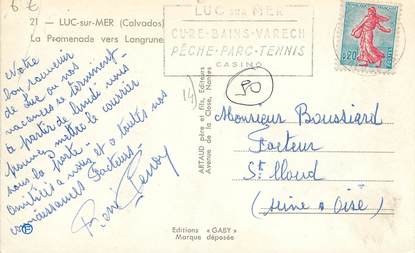 6 €
21 — LUC-sur-MER (Calvados)
La Promenade vers Langrune
LUC SUR MER
CURE-BAINS-VARECH
PÊCHE-PARC-TENNIS
CASINO
0,20
POSTES
Votre
bon souvenir
de Luc où nos
vacances se terminent
à partir de lundi vous
pouvez mettre le courrier
sous la porte
Amitiés à vous et à toutes nos
connaissances facteurs
ARTAUD père et fils, Éditeurs
Avenue de la Close, Nantes
14
50
Monsieur Boussiard
Facteur
St Cloud
(Seine & Oise)
Editions « GABY »
Marque déposée